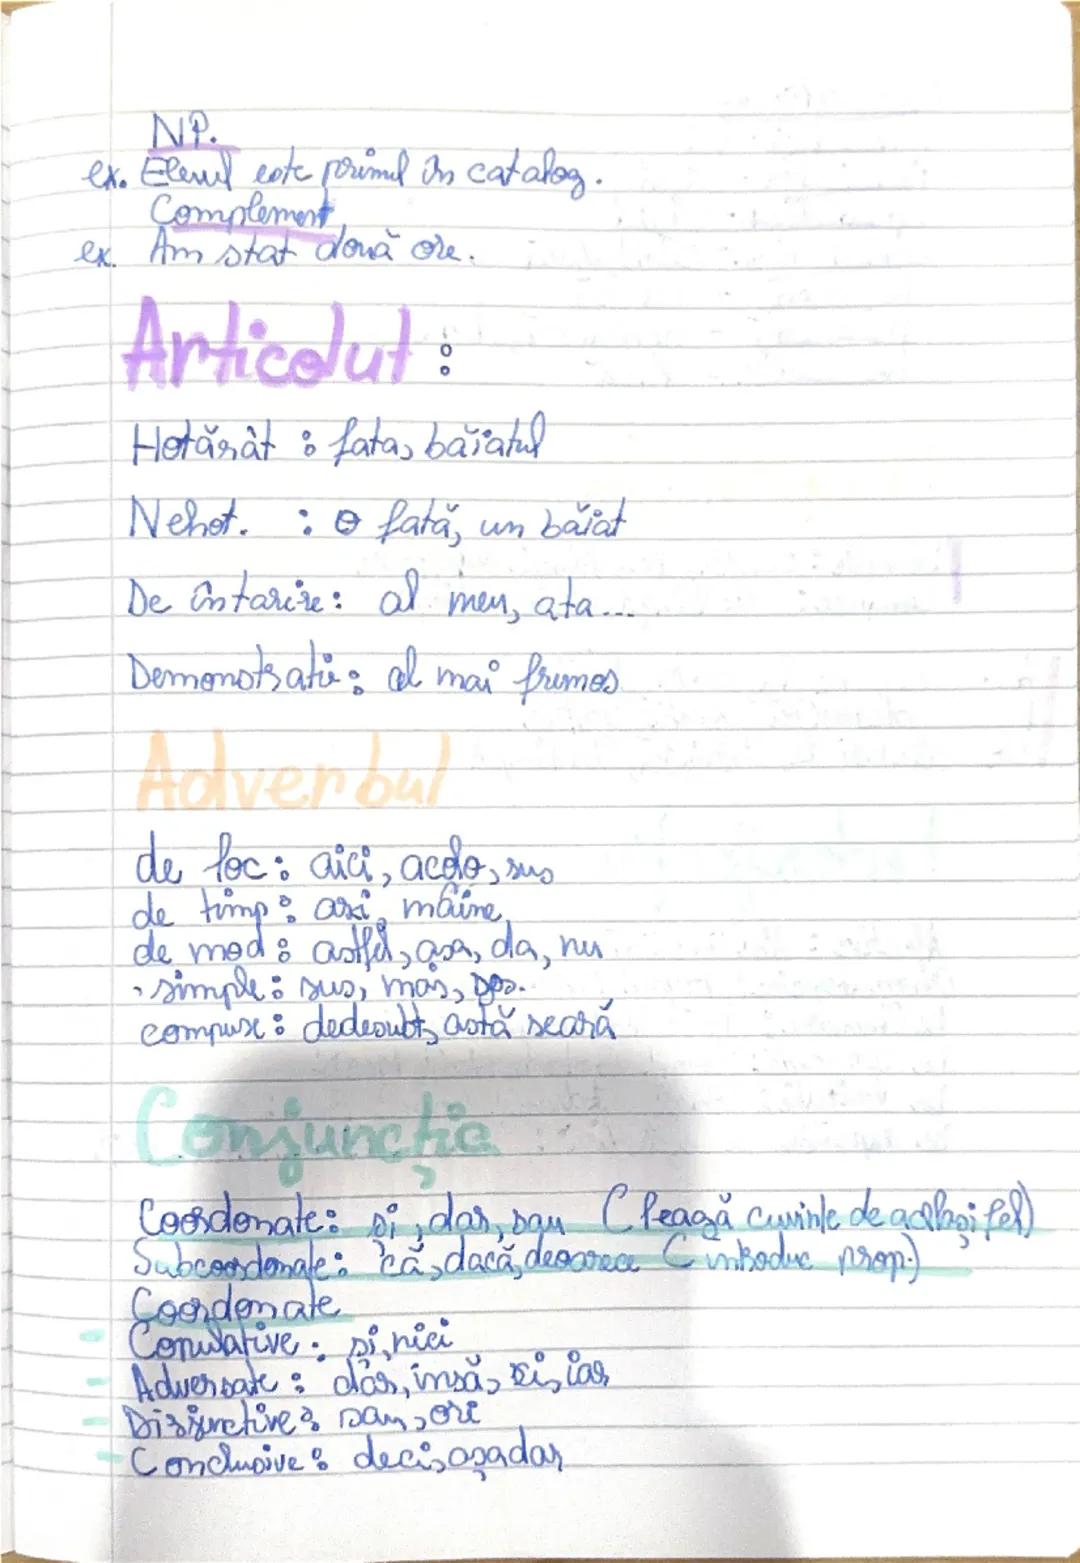 NP.
ex. Elevul este primul în catalog.
Complement
ex. Am stat două ore.
Articolut :
Hotărât : fata, băiatul
Nehot. : o fată, un băiat
De întarire: al meu, ata...
Demonstrativ: al mai frumos
Adverbul
de loc: aici, acolo, sus
de timp: azi, mâine,
de mod: astfel, asa, da, nu
simple: sus, mâs, jos.
compuse: dedesubt, astă seară
Conjuncția
Coordonate: și, dar, sau (leagă cuvinte de același fel)
Subcoordonate: că, dacă, deoarece (introduc prop.)
Coordonate
Copulative: și, nici
Adversate: dar, însă, ci, iar
Disjunctive: sau, ori
Conclusive: deci, așadar